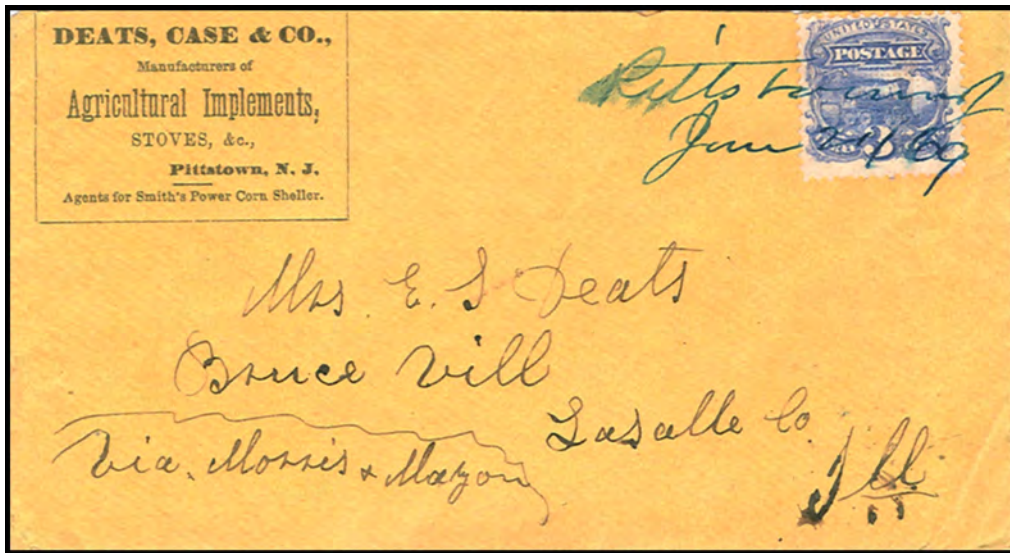 DEATS, CASE & CO.,
Manufacturers of
Agricultural Implements,
STOVES, &c.,
Pittstown, N. J.
Agents for Smith's Power Corn Sheller.
UNITED STATES
POSTAGE
Pittstown NJ
June 24/69
Mrs E. S Deats
Bruce Vill
LaSalle Co
Ill
Via. Morris & Mazon